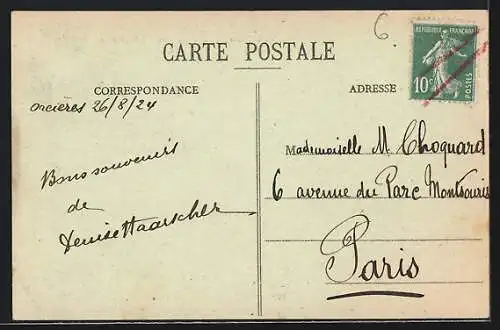 6
CARTE POSTALE
RÉPUBLIQUE FRANÇAISE
10c
POSTES
CORRESPONDANCE
ADRESSE
Orcières 26/8/24
Bons souvenirs
de
Denise
Mademoiselle M. Choquard
6 avenue du Parc Montsouris
Paris